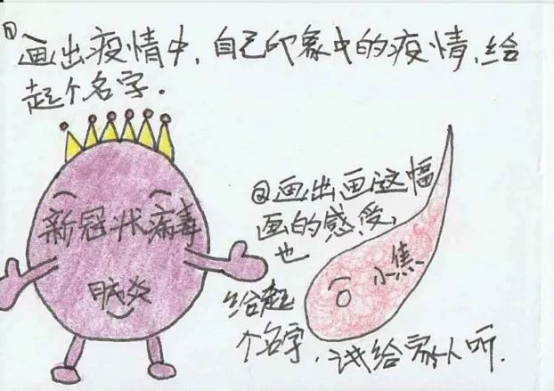 ①画出疫情中,自己印象中的疫情,给
起个名字.
新冠状病毒
肺炎
②画出画这幅
画的感受,
也
给起
个名字,试给家人听.
小焦